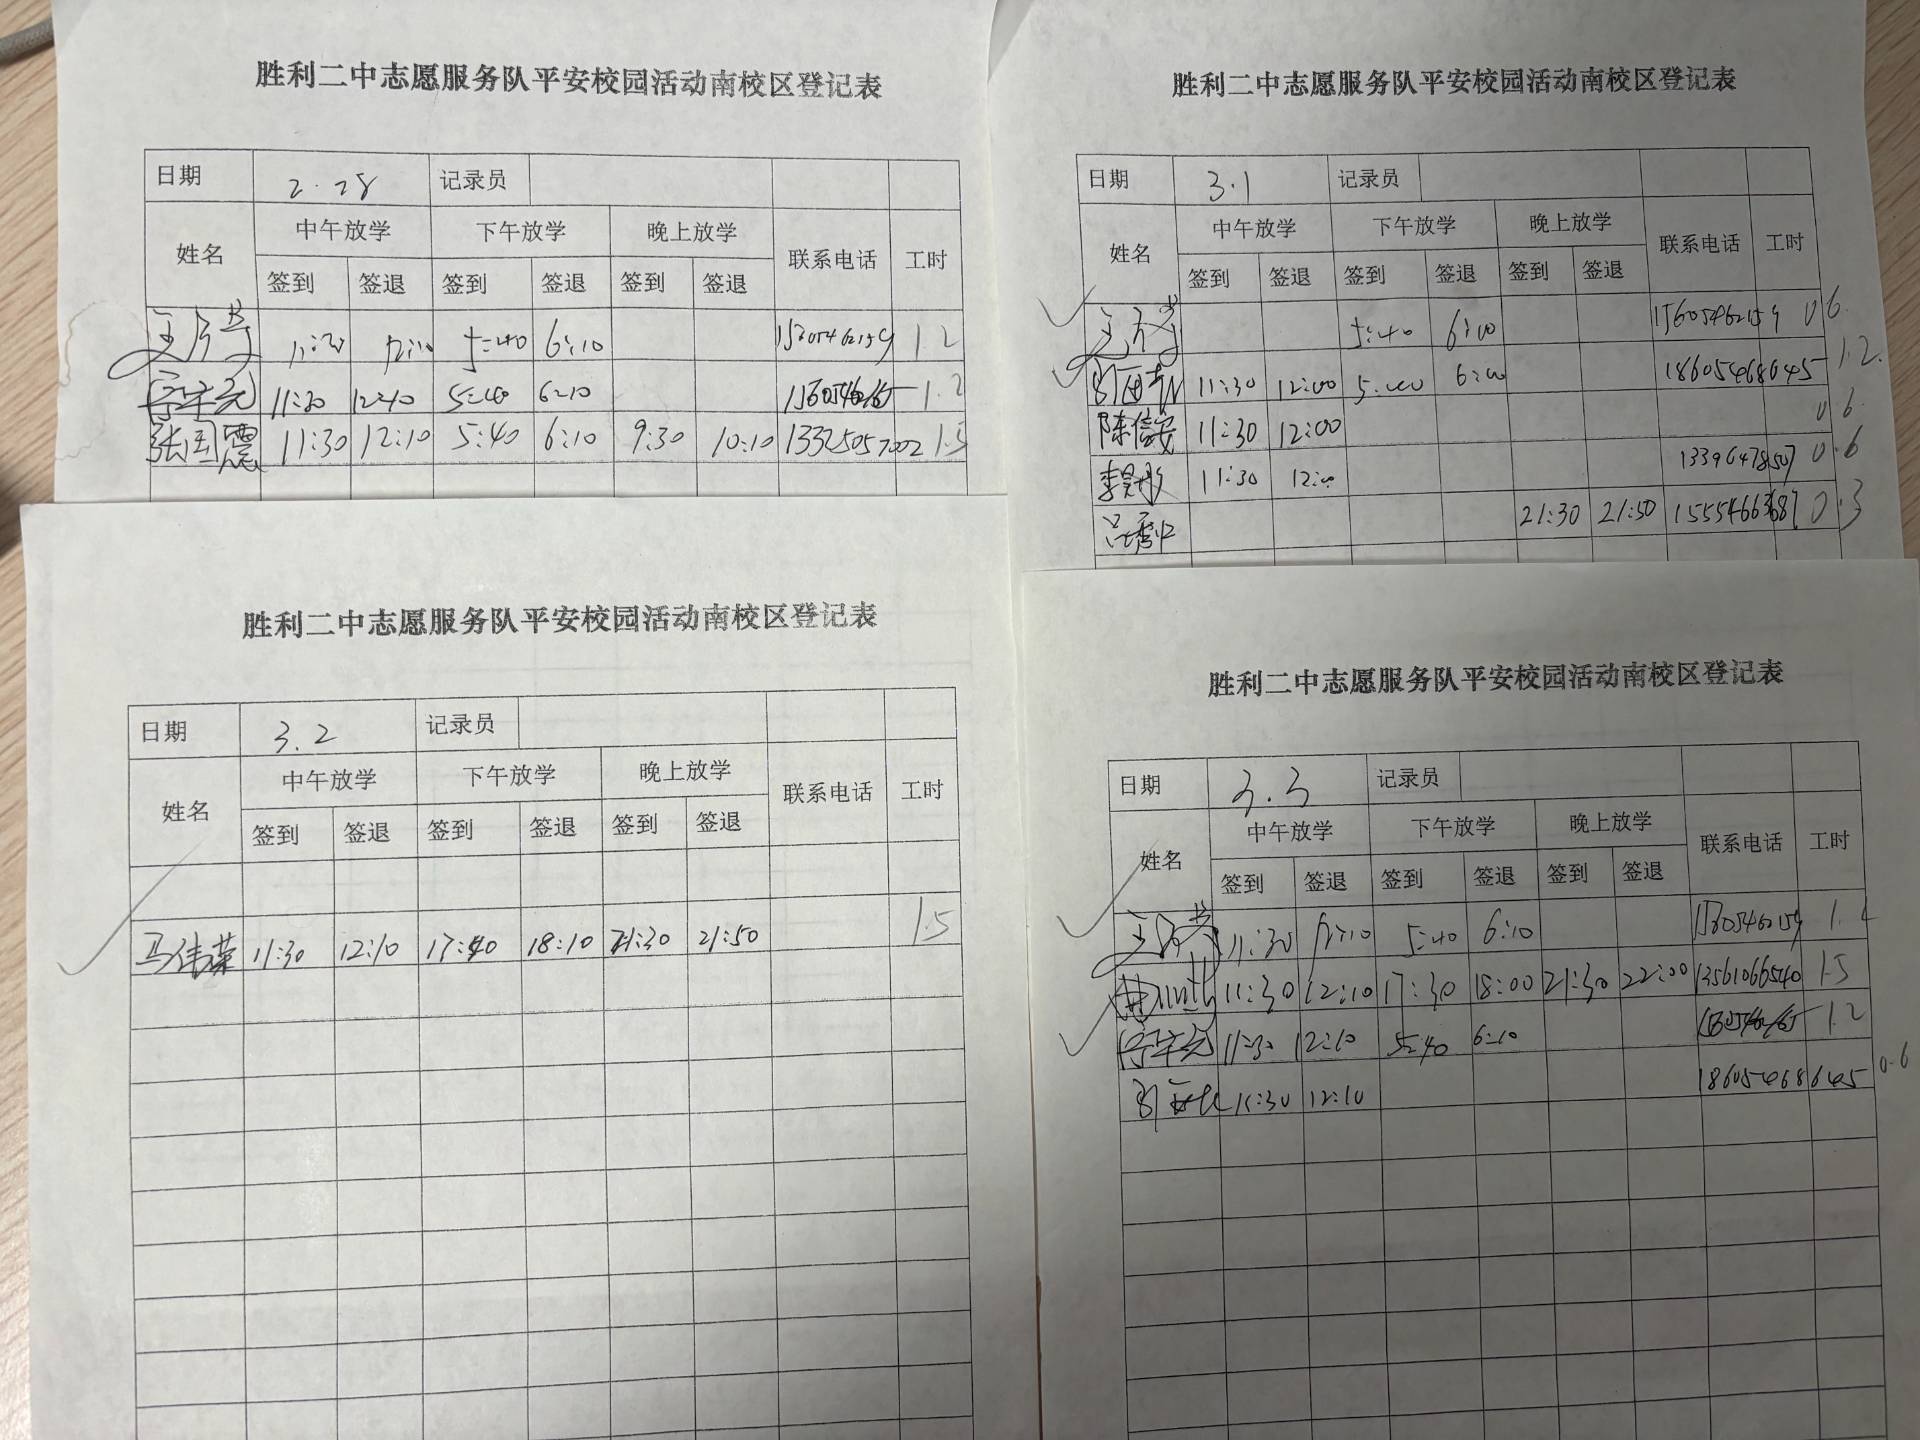 胜利二中志愿服务队平安校园活动南校区登记表
日期 2.28 记录员
姓名 中午放学 下午放学 晚上放学 联系电话 工时
签到 签退 签到 签退 签到 签退
5:40 6:10 1.2
11:30 12:10 5:40 6:10 1.2
张国震 11:30 12:10 5:40 6:10 9:30 10:10 13325057002 1.5
胜利二中志愿服务队平安校园活动南校区登记表
日期 3.1 记录员
姓名 中午放学 下午放学 晚上放学 联系电话 工时
签到 签退 签到 签退 签到 签退
5:40 6:00 0.6
11:30 12:00 5:00 6:00 18605468645 1.2.
陈信安 11:30 12:00 0.6
11:30 12:00 13396478507 0.6
21:30 21:50 15554663687 0.3
胜利二中志愿服务队平安校园活动南校区登记表
日期 3.2 记录员
姓名 中午放学 下午放学 晚上放学 联系电话 工时
签到 签退 签到 签退 签到 签退
马伟荣 11:30 12:10 17:40 18:10 21:30 21:50 1.5
胜利二中志愿服务队平安校园活动南校区登记表
日期 3.3 记录员
姓名 中午放学 下午放学 晚上放学 联系电话 工时
签到 签退 签到 签退 签到 签退
11:30 12:10 5:40 6:10
11:30 12:10 17:30 18:00 21:30 22:00 13561066540 1.5
11:30 12:10 5:40 6:10 1.2
11:30 12:10 18605468645 0.6